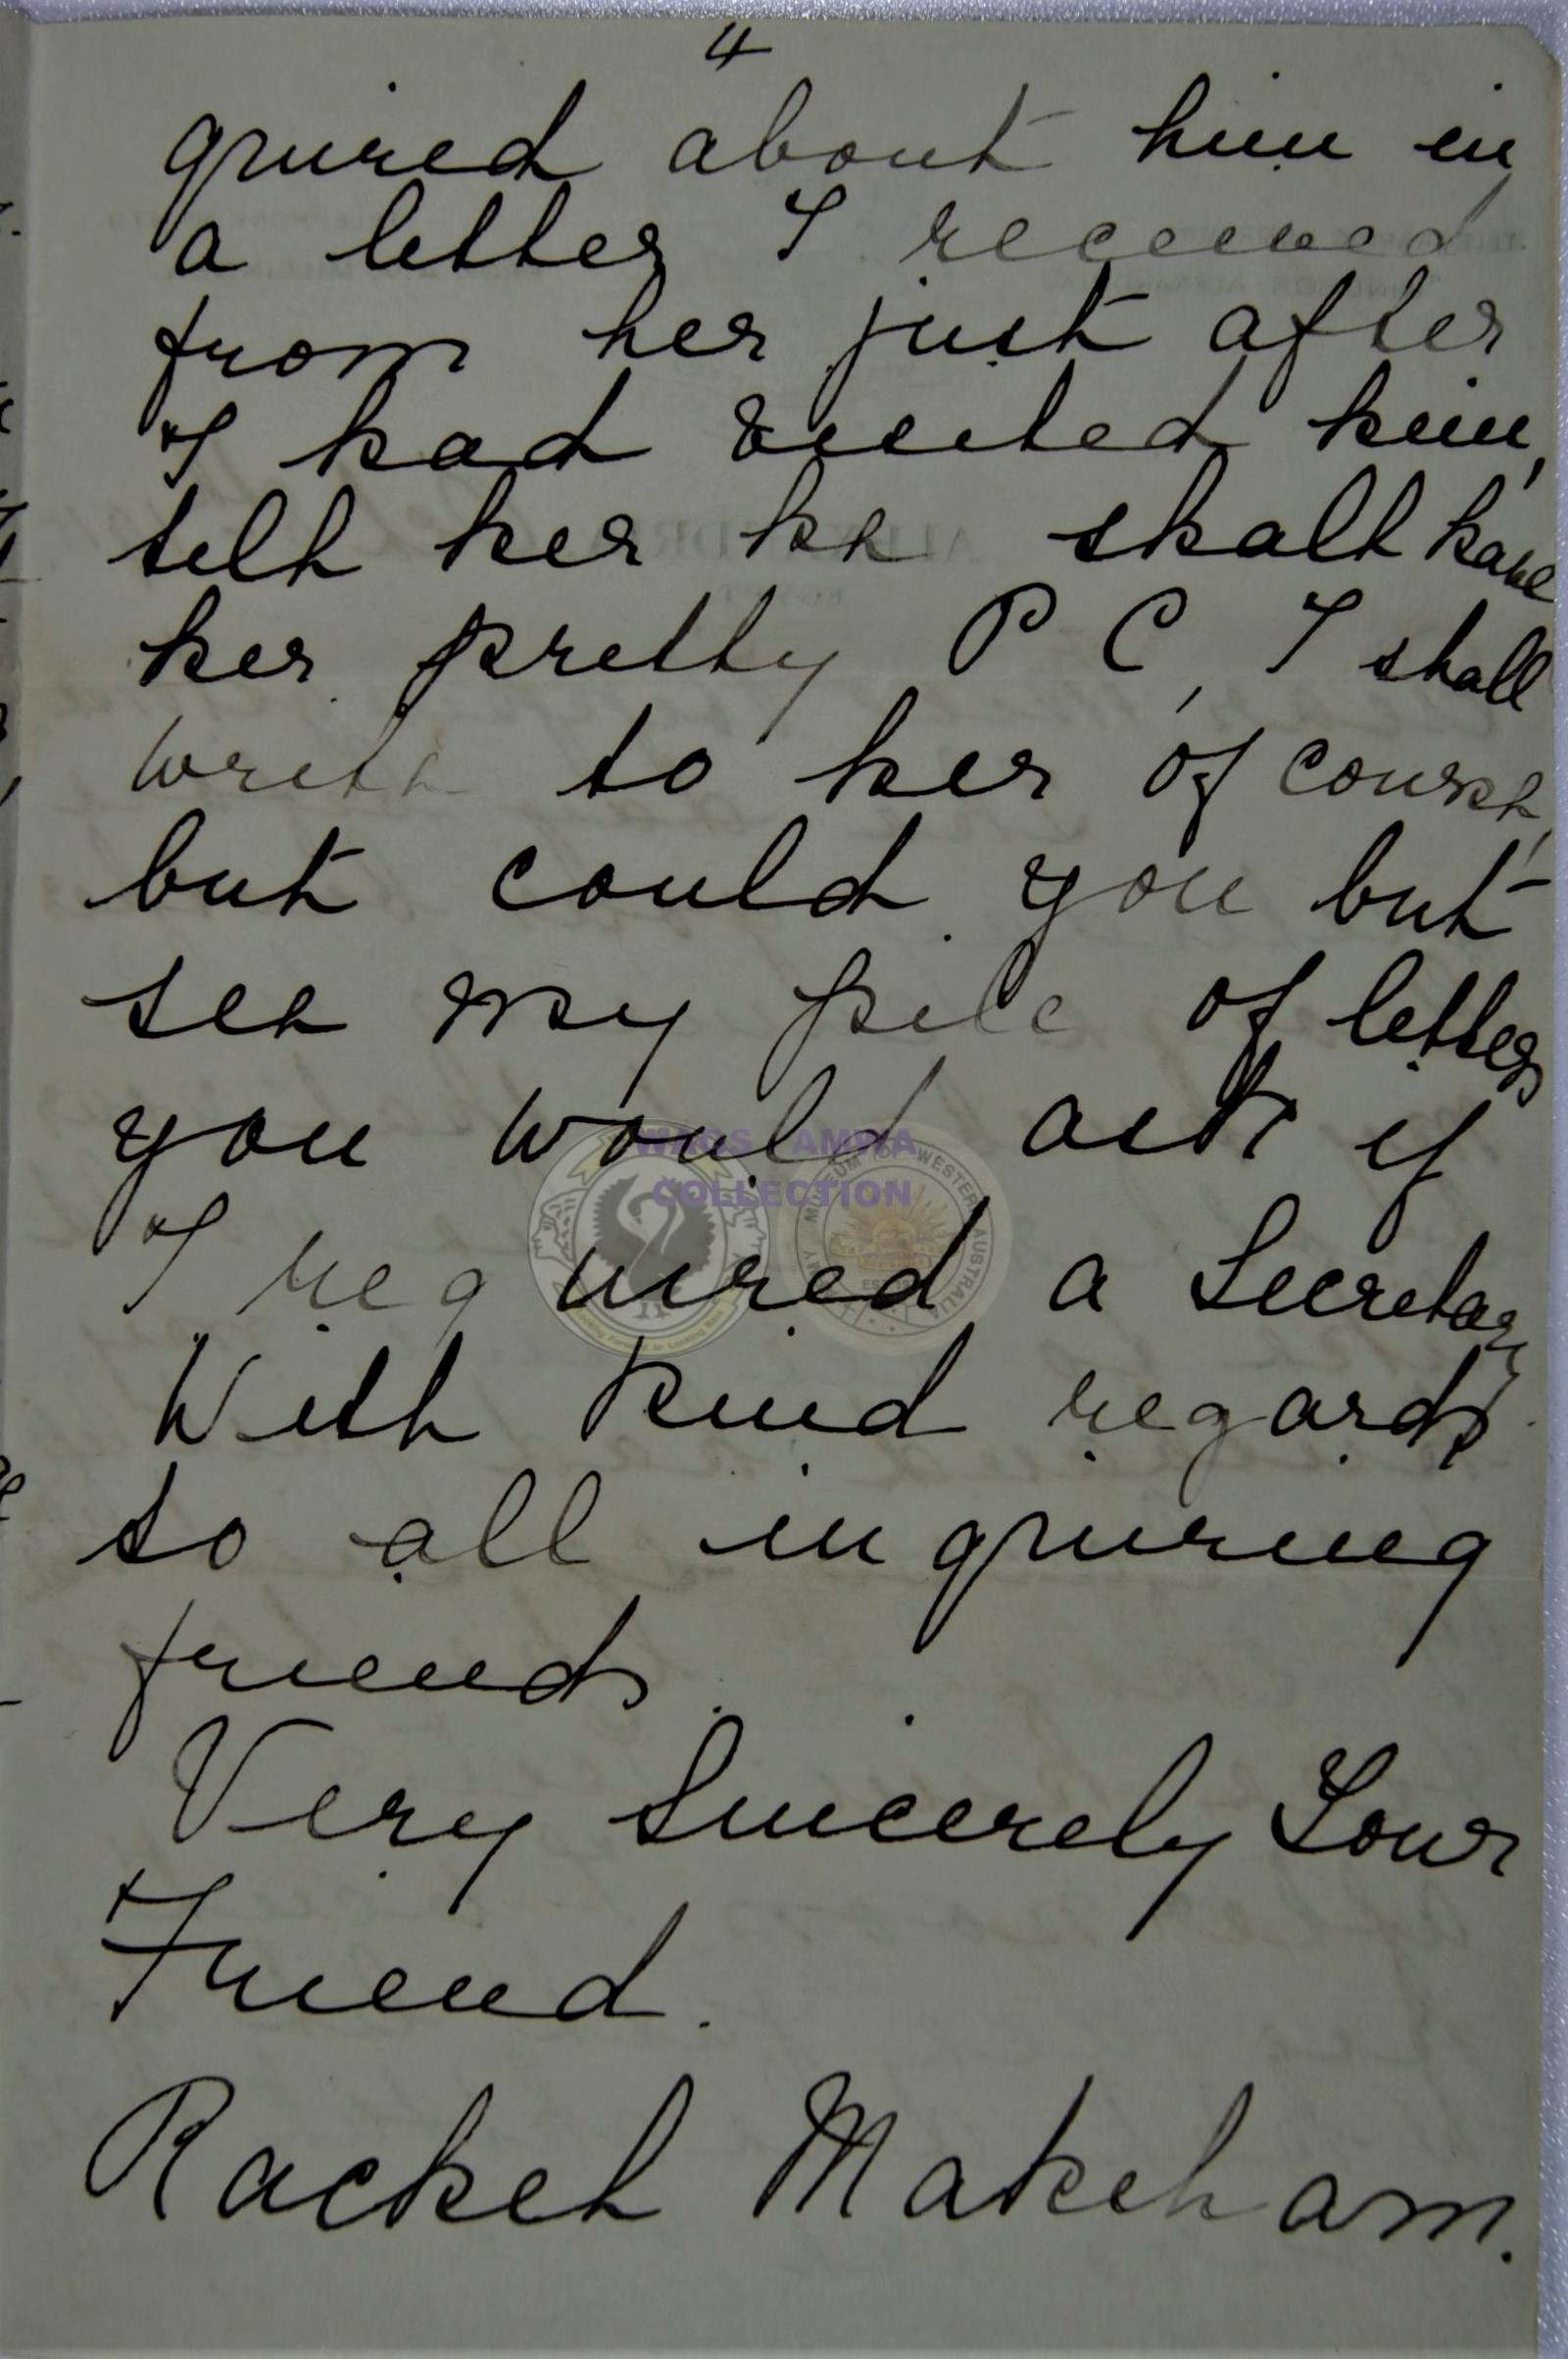 4
quired about him in
a letter I received
from her just after
I had visited him,
tell her he shall have
her pretty P C, I shall
write to her of course,
but could you but
see my pile of letters
you would ask if
WAGS AMWA
COLLECTION
I required a Secretary
With kind regards
to all inquiring
friends.
Very Sincerely Your
Friend.
Rachel Makeham.